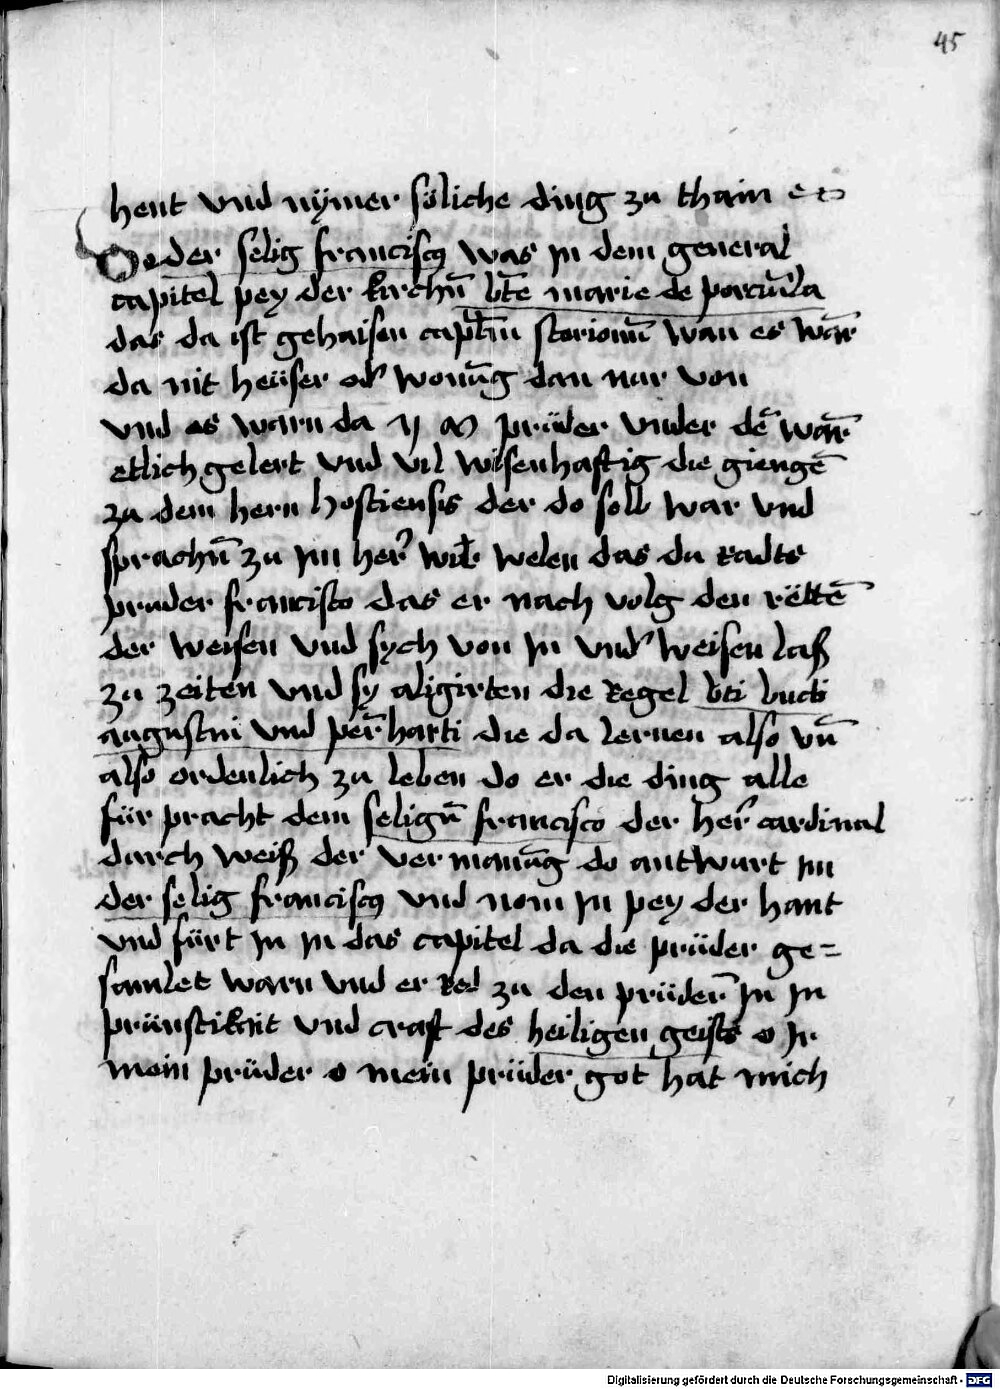 45
hent vnd nÿmer söliche ding zu thain etc
Do der selig franciscus was In dem general
capitel pey der kirchn̄ bt̄e marie de porciūla
das da ist gehaisen capl̄m storionm̄ wan es wār
da nit heüser od' wonūg dan nur von
vnd es warn da v M prüder vnder dē wār
etlich gelert vnd vil wisenhaftig die giengē
zu dem hern hostiensis der do selb war vnd
sprachn̄ zu im her' wir welen das du radts
pruder francisco das er nach volg den rëttē
der weisen vnd sych von In vnd' weisen laß
zu zeiten vnd sy aligirten die Regel bti bndi
augustini vnd per̄harti die da lernen also vn̄
also ordenlich zu leben do er die ding alle
für pracht dem selign̄ francisco der her' cardinal
durch weiß der vermanūg do antwurt im
der selig franciscus vnd nom In pey der hant
vnd fürt In In das capitel da die prüder ge=
samlet warn vnd er Red zu den prüder̄ In In
prünstikait vnd craft des heiligen geists o Ir
mein prüder o mein prüder got hat mich
Digitalisierung gefördert durch die Deutsche Forschungsgemeinschaft - DFG